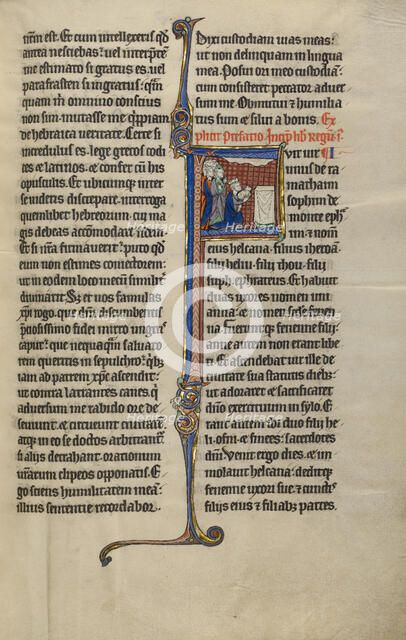 nem est. Et cum intellexeris qd
antea nesciebas? vel interptem
me estimato si gratus es. vel
parafrasten si ingratus. qm
quam m omnino conscius
non sim mutasse me qppiam
de hebraica veritate. Certe si
incredulus es. lege grecos codi
ces et latinos. et confer cum his
opusculis. Et ubicumque inter se
videris discrepare. interroga
quemlibet hebreorum. cui ma
gis debeas accomodare fidem.
Et si nra firmaverit? puto qd
eum non estimes coniectorem.
ut in eodem loco mecum similiter
divinarit. Sz et vos famulas
xpi rogo. que dni discumbentis
pciosissimo fidei mirro ungitis
caput? que nequaquam salvato
rem queritis in sepulchro? qbz
iam ad patrem xpc ascendit.
ut contra latrantes canes. qi
adversum me rabido ore de
seviunt. et circueunt civitatem
atque in eo se doctos arbitrantur.
si aliis detrahant. orationum
vestrarum clipeos opponatis. E
go sciens humilitatem meam.
illius sententie recordabor.
Dixi custodiam vias meas.
ut non delinquam in lingua
mea. Posui ori meo custodiam.
cum consisteret peccator adver
sum me. Obmutui et humilia
tus sum et silui a bonis. Ex
plicit Prefatio. Incipit lib Regum.
F uit vir u
nus de ra
mathaim
sophim de
monte eph
raim. et nom
eius helcana. filius iheroam.
filij heliu. filij thou. filij
suph. ephrateus. Et habuit
duas uxores. nomen uni
anna. et nomen scde fenen
na. Fueruntque fenenne filij.
anne autem non erant libe
ri. Et ascendebat vir ille de
civitate sua statutis diebz.
ut adoraret et sacrificaret
dno exercituum in sylo. Erant
autem ibi duo filij he
li. ofni et finees. sacerdotes
dni. Venit ergo dies. et im
molavit helcana. deditque
fenenne uxori sue. et cunctis
filijs eius et filiabz partes.
Heritage Images
Heritage Images
Heritage Images
Heritage Images